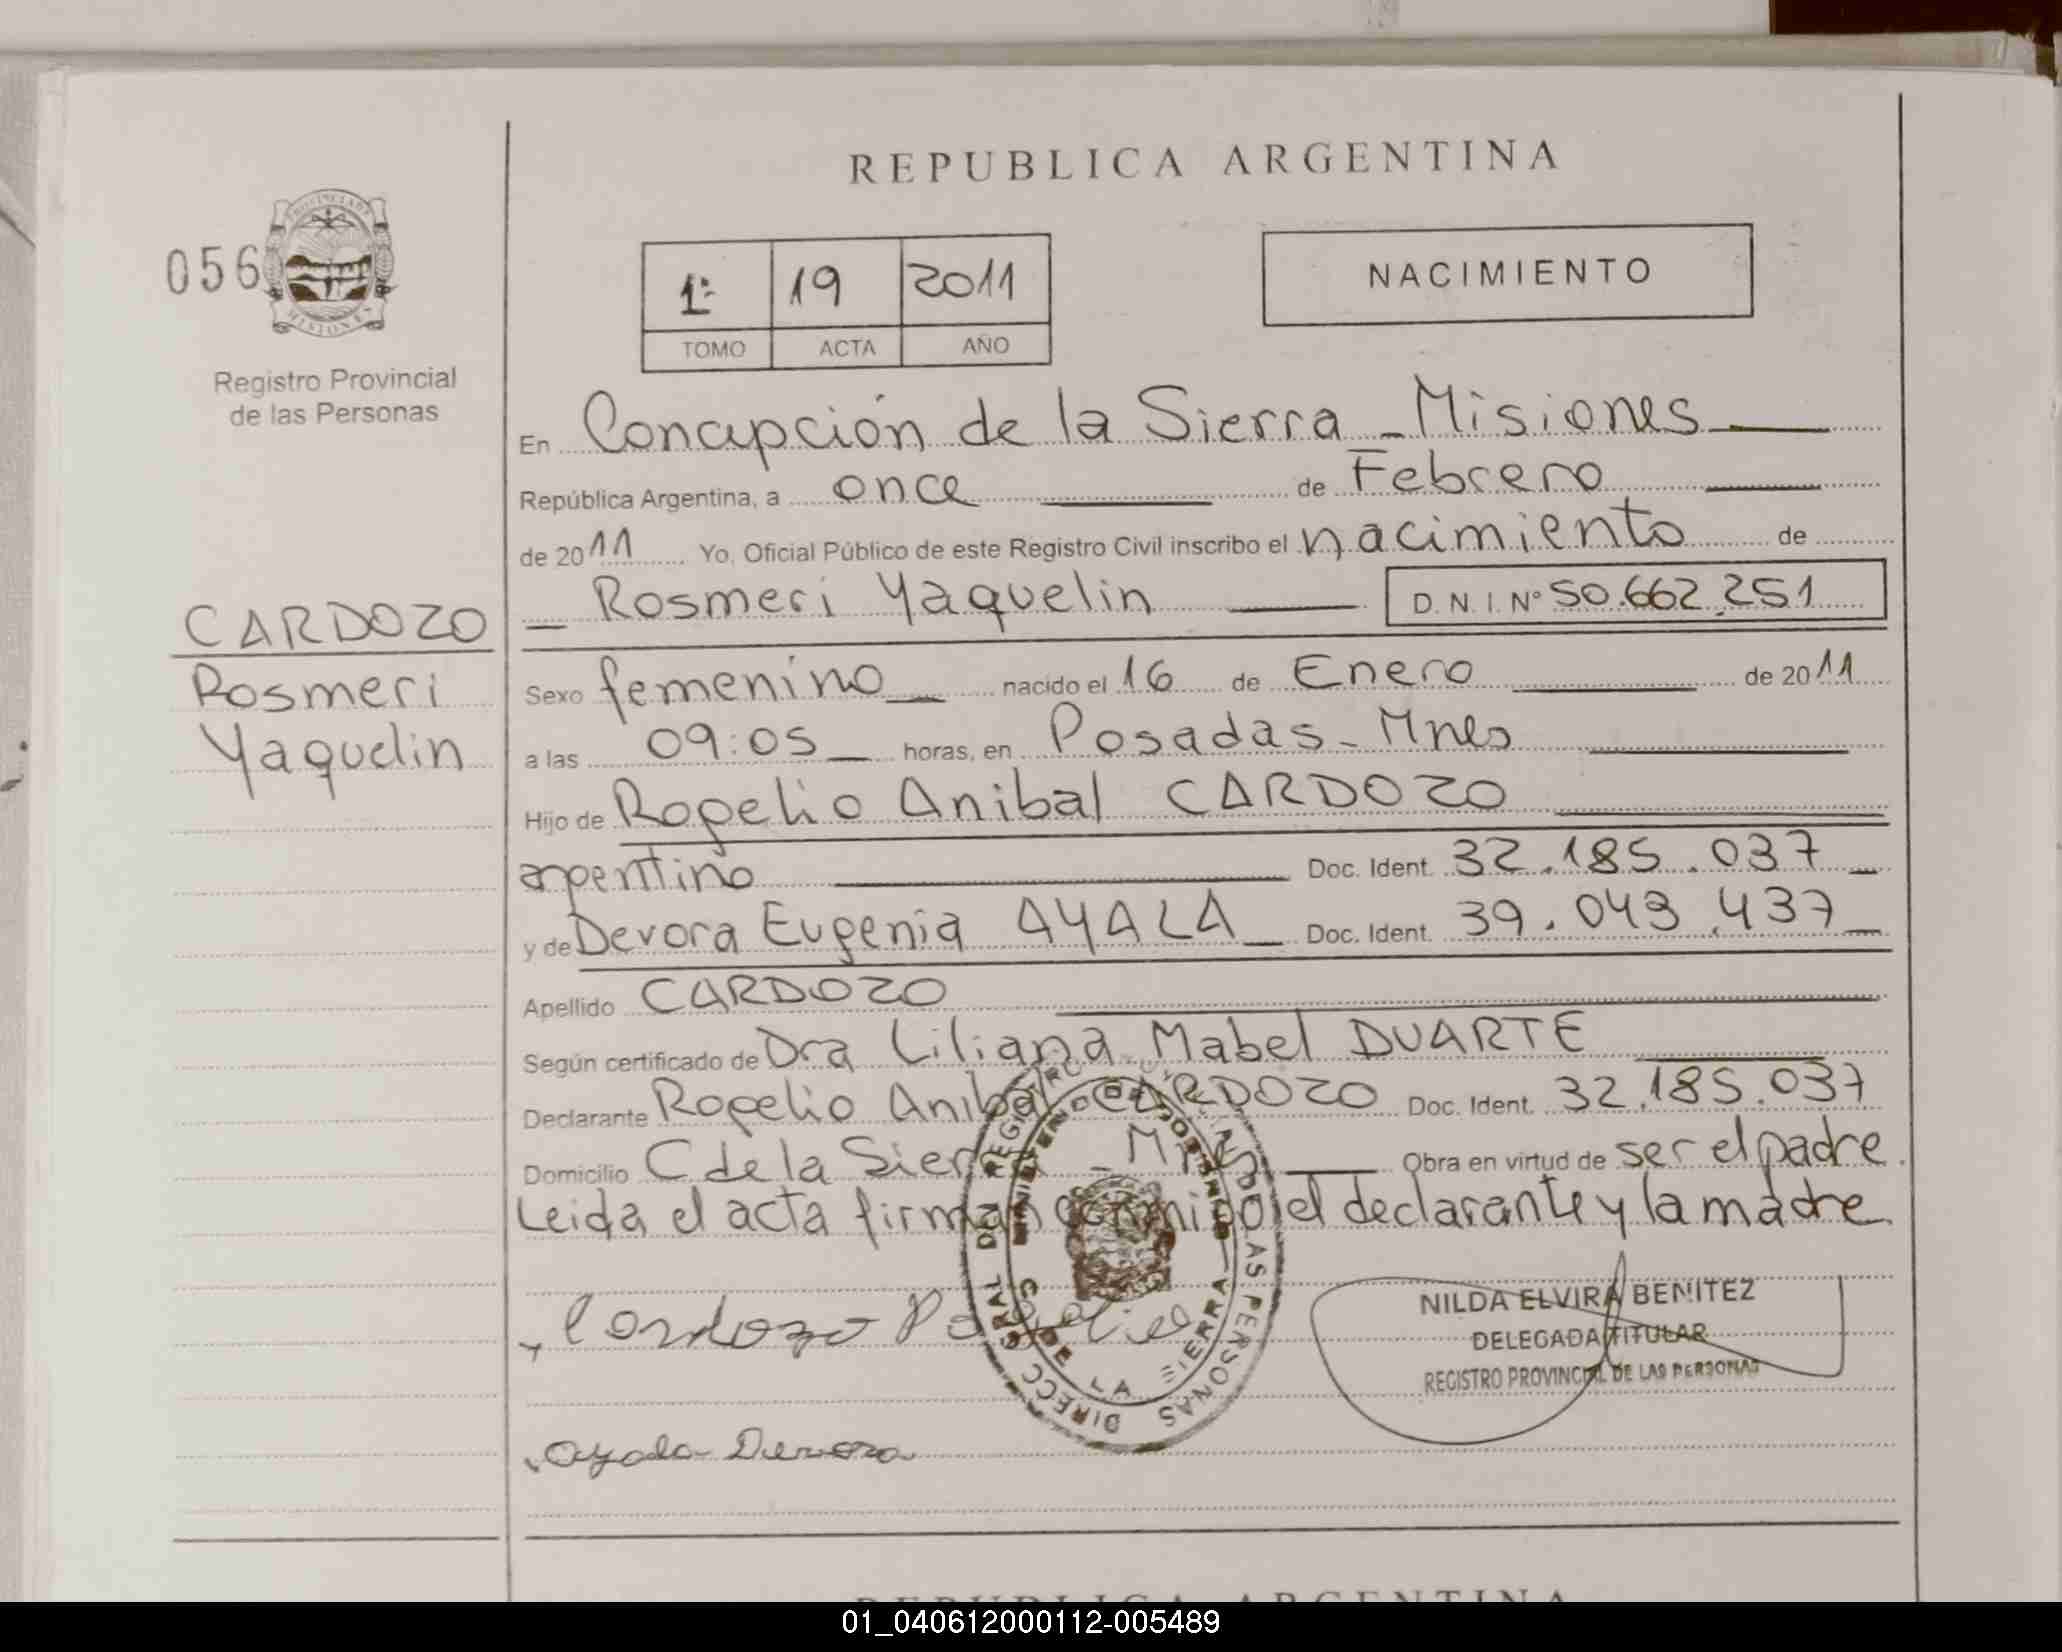 REPUBLICA ARGENTINA
056
PROVINCIA DE
MISIONES
Registro Provincial
de las Personas
1º 19 2011
TOMO ACTA AÑO
NACIMIENTO
CARDOZO
Rosmeri
Yaquelin
En Concepción de la Sierra - Misiones
República Argentina, a once de Febrero
de 2011 Yo, Oficial Público de este Registro Civil inscribo el nacimiento de
Rosmeri Yaquelin D.N.I. Nº 50.662.251
Sexo femenino nacido el 16 de Enero de 2011
a las 09:05 horas, en Posadas - Mnes
Hijo de Rogelio Anibal CARDOZO
argentino Doc. Ident. 32.185.037
y de Devora Eugenia AYALA Doc. Ident. 39.043.437
Apellido CARDOZO
Según certificado de Dra Liliana Mabel DUARTE
Declarante Rogelio Anibal CARDOZO Doc. Ident. 32.185.037
Domicilio C de la Sierra - Mnes Obra en virtud de ser el padre.
Leida el acta firman conmigo el declarante y la madre
Cardozo Rogelio
NILDA ELVIRA BENITEZ
DELEGADA TITULAR
REGISTRO PROVINCIAL DE LAS PERSONAS
Ayala Devora
DIRECC GRAL DEL REGISTRO DE LAS PERSONAS
MINISTERIO DE GOBIERNO
C. DE LA SIERRA
REPUBLICA ARGENTINA
01_040612000112-005489